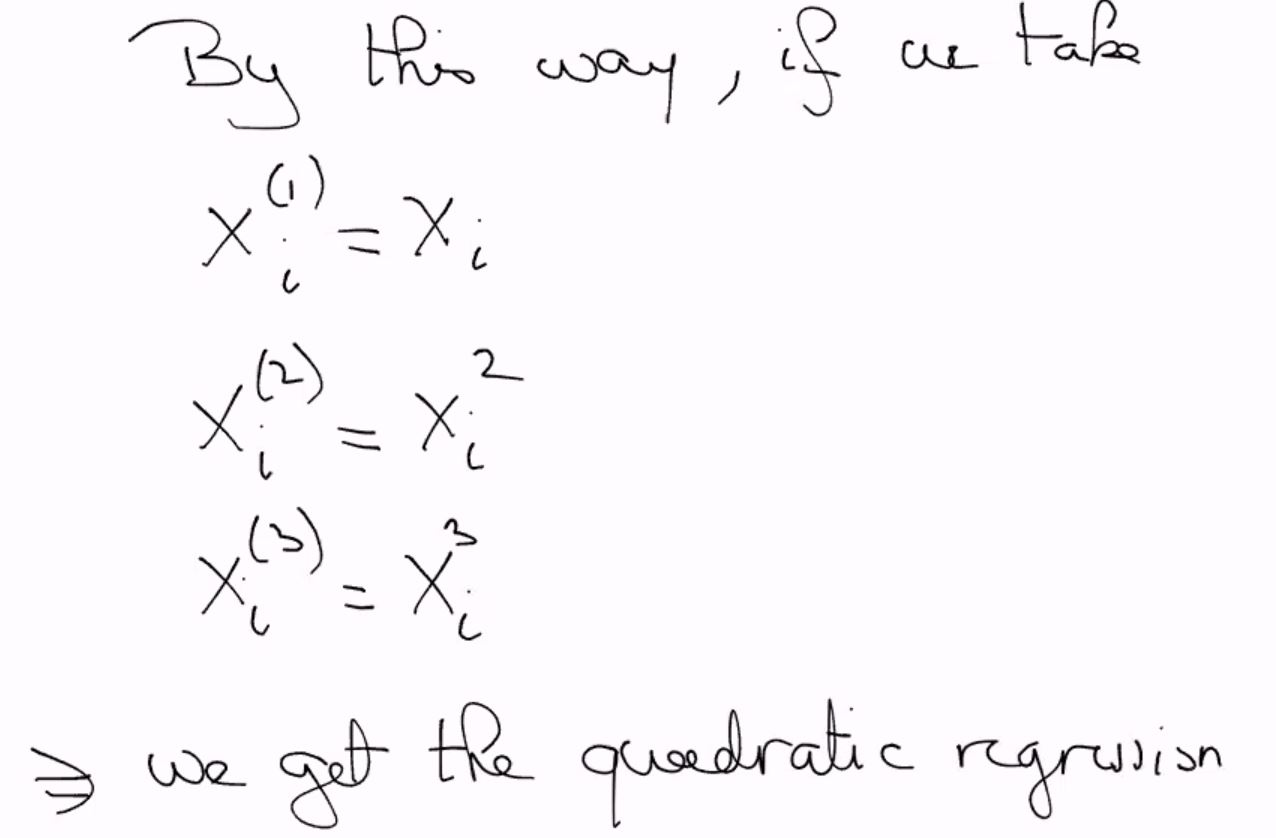 By this way, if we take
X_i^(1) = X_i
X_i^(2) = X_i^2
X_i^(3) = X_i^3
⇒ we get the quadratic regression